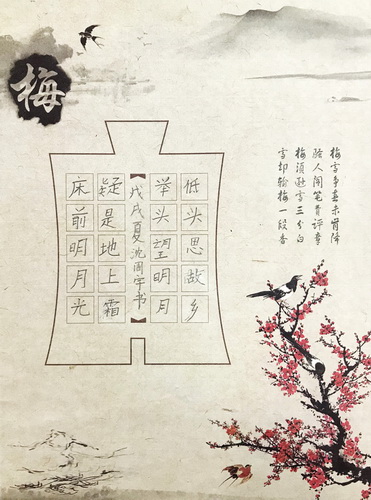 梅
床前明月光
疑是地上霜
戊戌夏沈周宇书
举头望明月
低头思故乡
梅雪争春未肯降
骚人阁笔费评章
梅须逊雪三分白
雪却输梅一段香